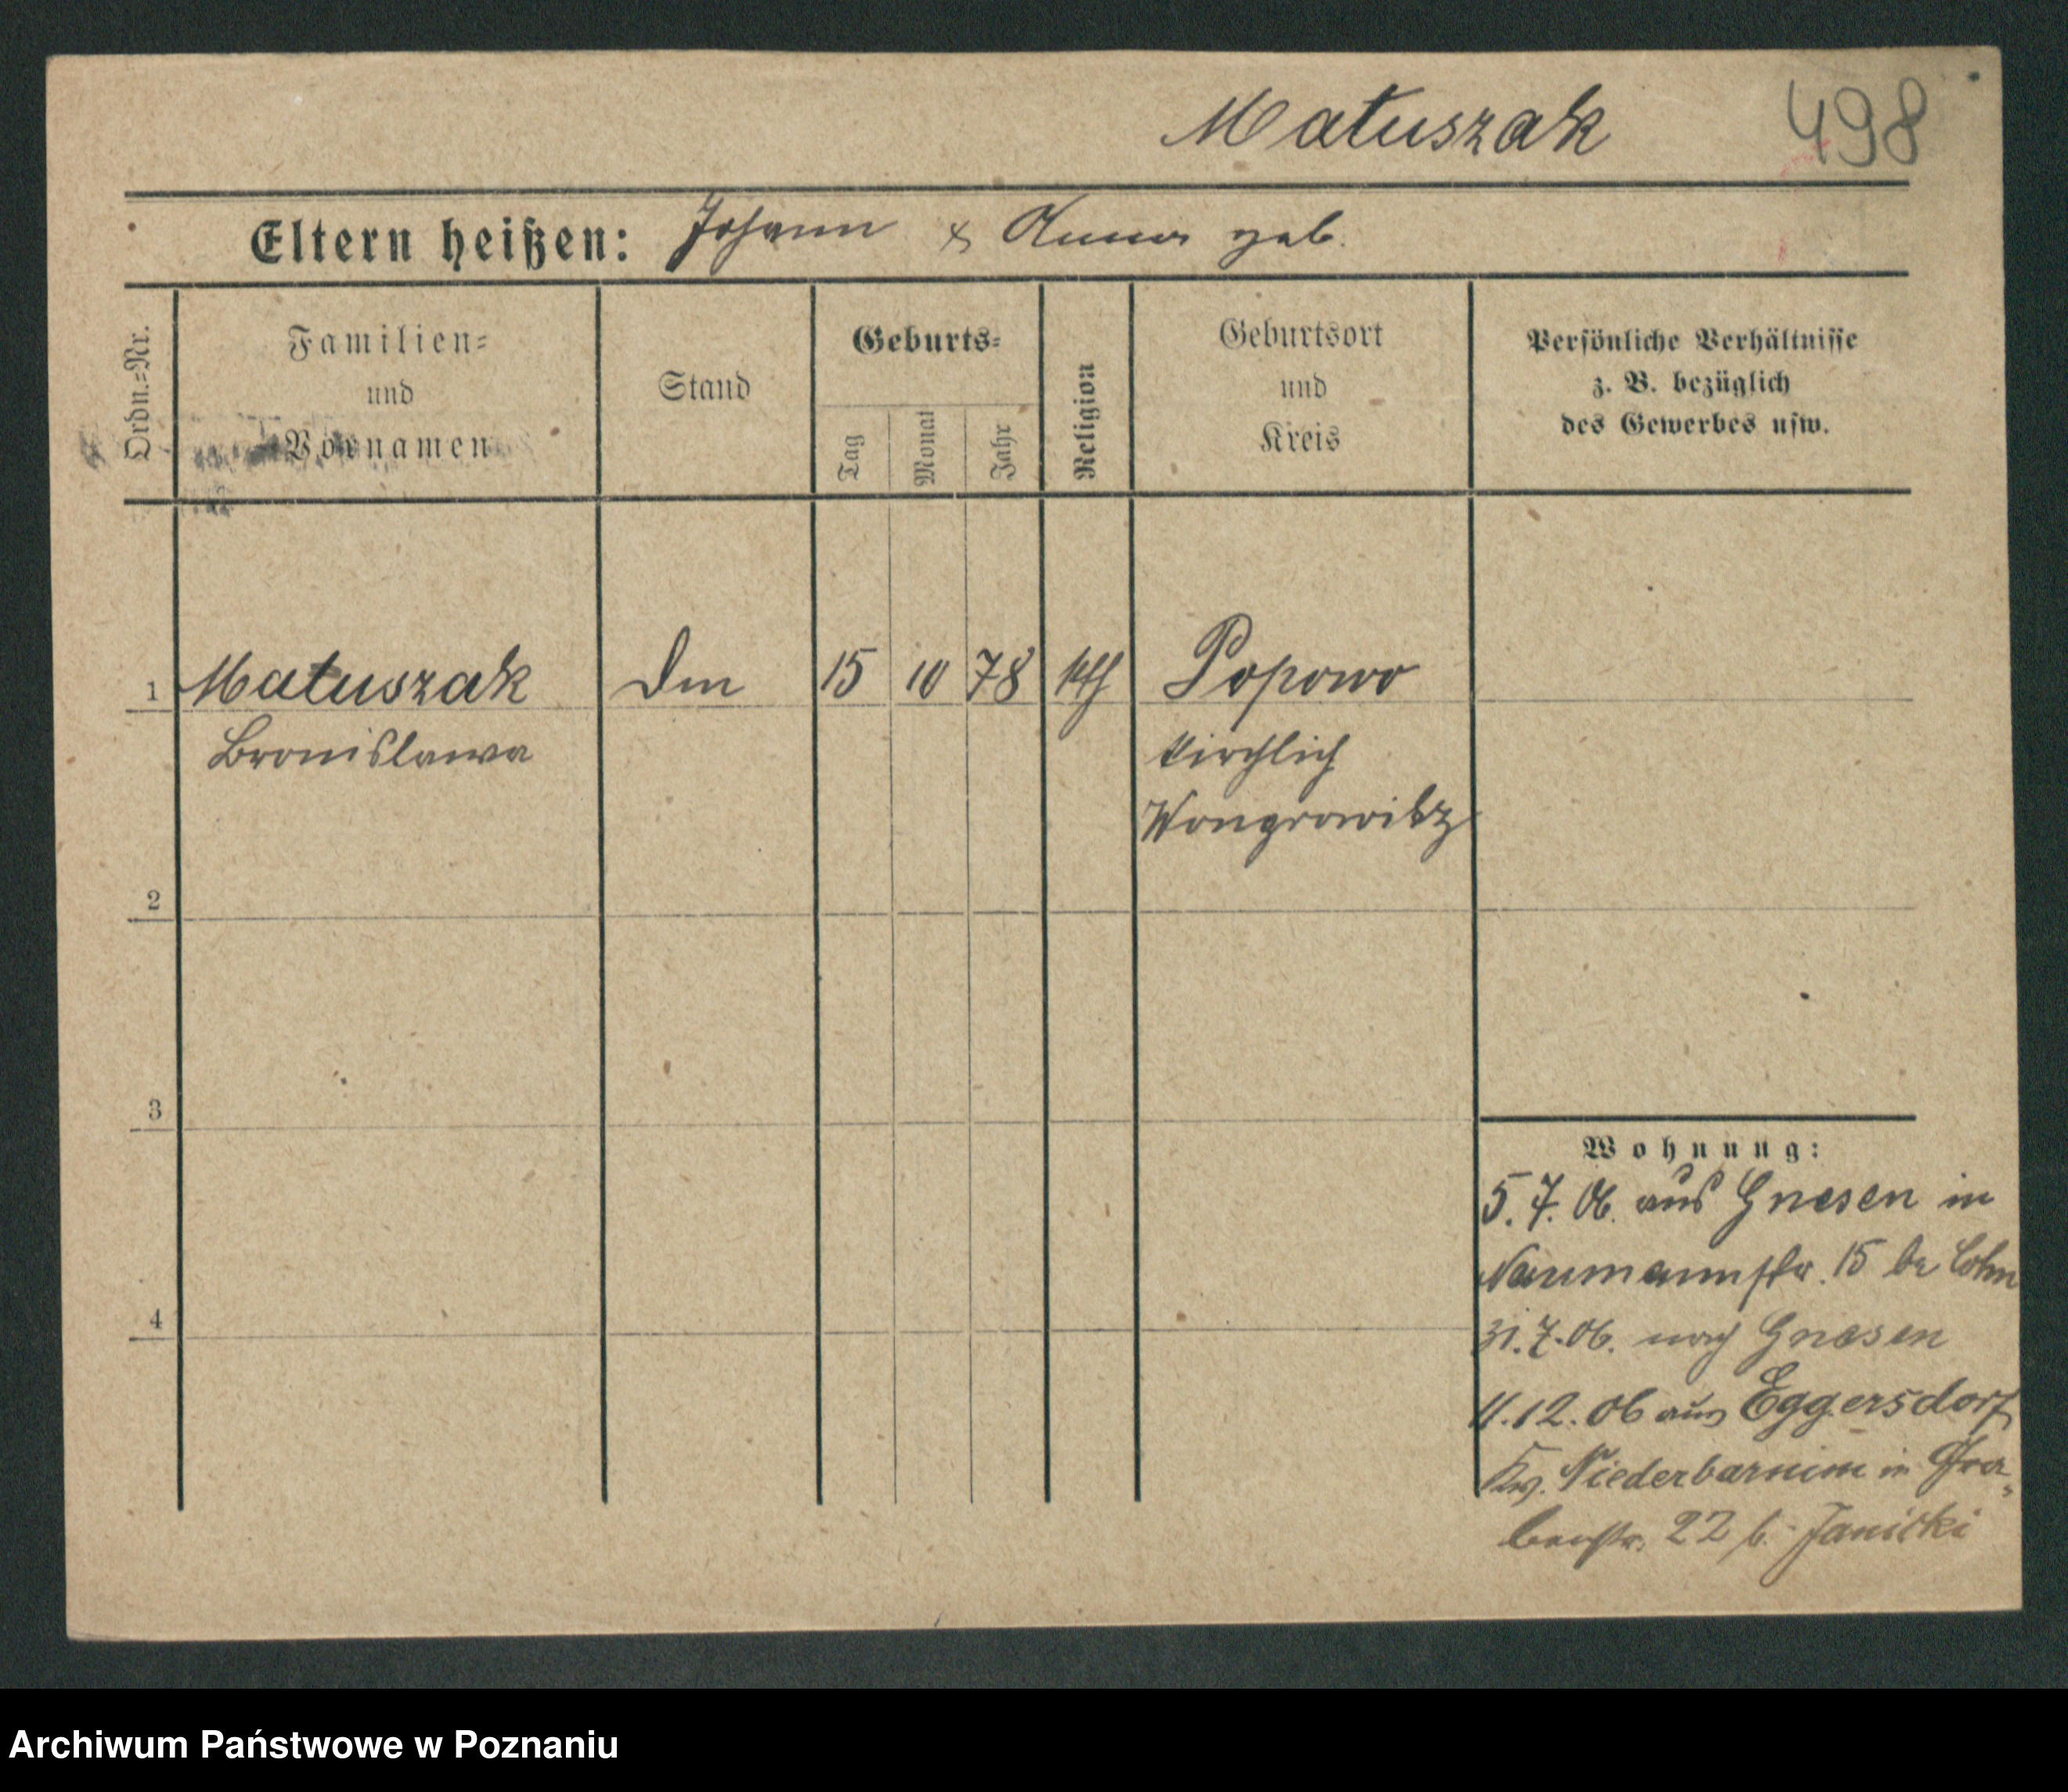 Matuszak 498
Eltern heißen: Johann & Anna geb.
Ordn.=Nr.
Familien=
und
Vornamen
Stand
Geburts=
Tag
Monat
Jahr
Religion
Geburtsort
und
Kreis
Persönliche Verhältnisse
z. B. bezüglich
des Gewerbes usw.
1 Matuszak 15 10 78 kth Popowo
Bronislawa kirchlich
Wongrowitz
2
3
4
Wohnung:
5.7.06. aus Gnesen in
Naumannstr. 15 be Cohn
31.7.06. nach Gnesen
11.12.06 aus Eggersdorf
Niederbarnim in Gra=
benstr. 22 b. Janicki
Archiwum Państwowe w Poznaniu